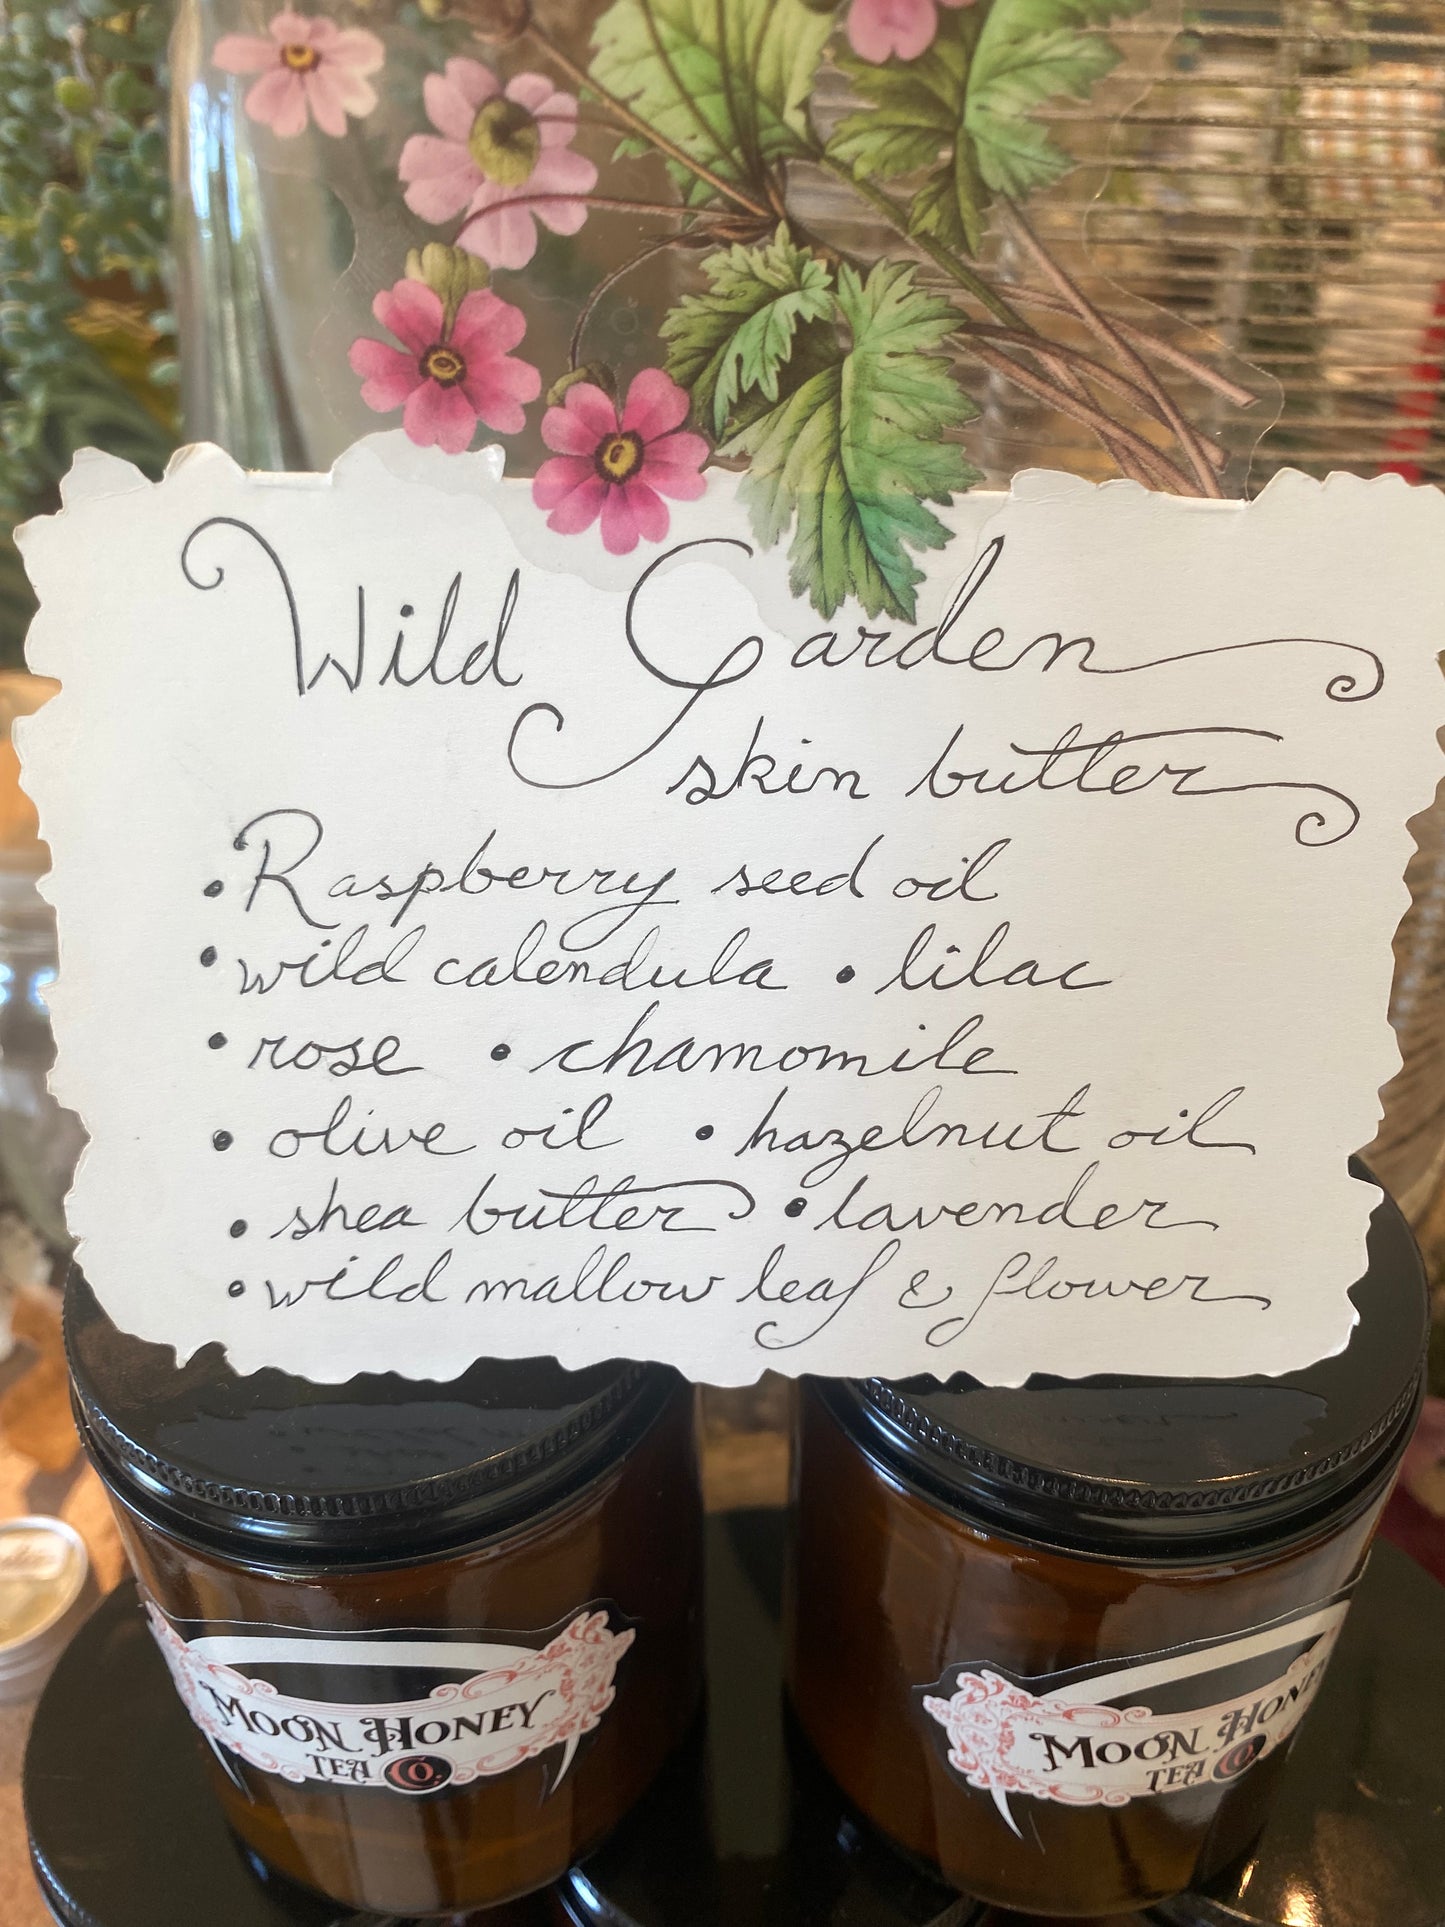 Wild Garden
skin butter
• Raspberry seed oil
• wild calendula • lilac
• rose • chamomile
• olive oil • hazelnut oil
• shea butter • lavender
• wild mallow leaf & flower
MOON HONEY
TEA CO.
MOON HONEY
TEA CO.